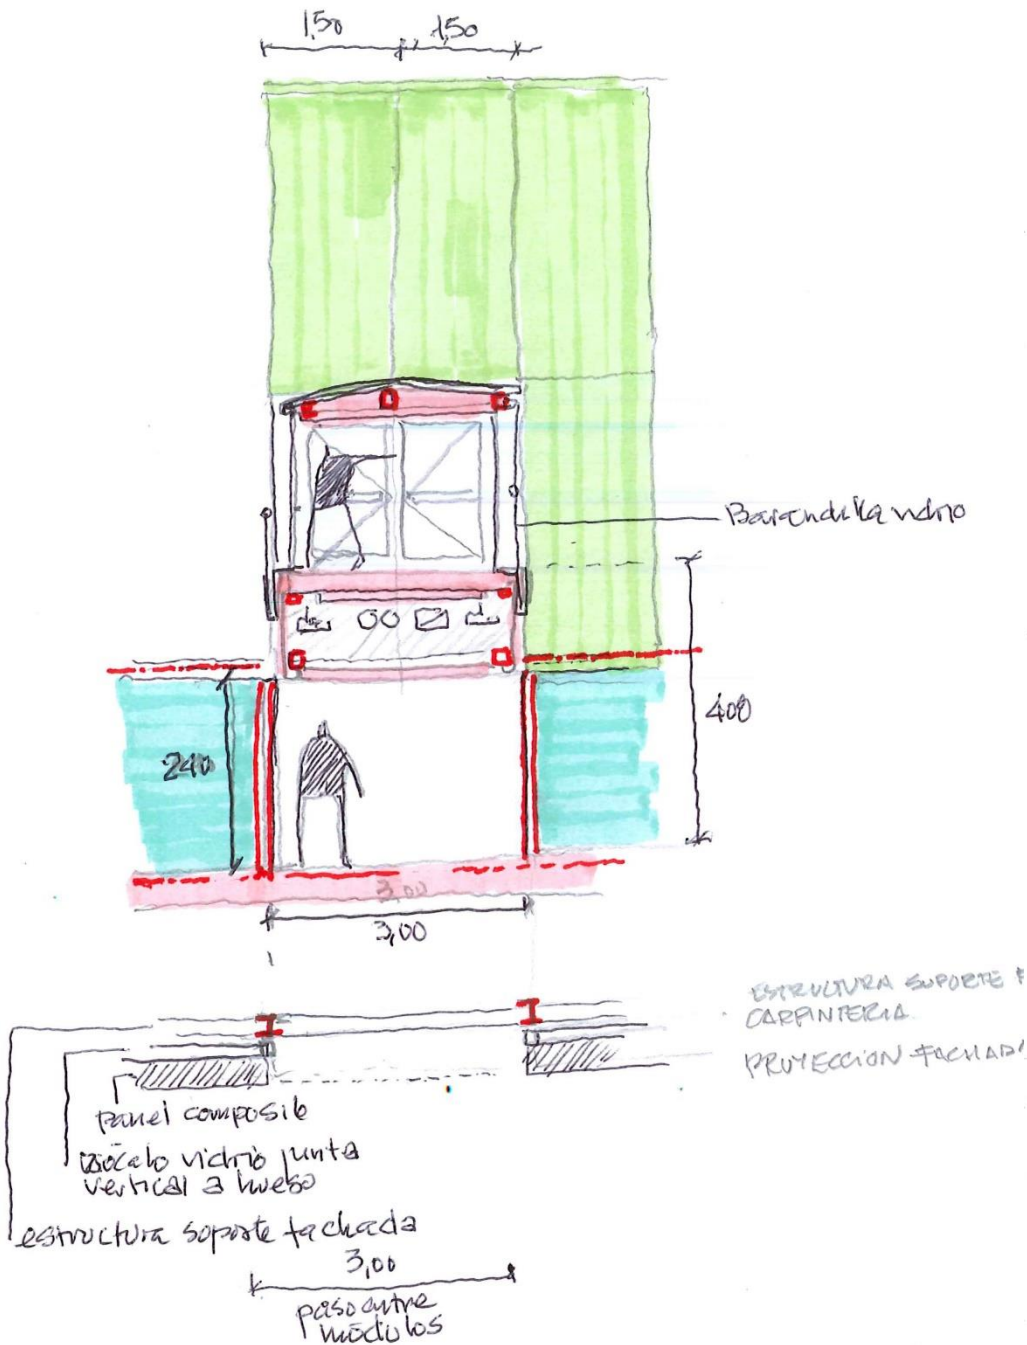 1,50
1,50
Barandilla vidrio
400
240
3,00
3,00
ESTRUCTURA SUPORTE
CARPINTERIA
PROYECCION FACHADA
panel composite
zócalo vidrio junta
vertical a hueso
estructura soporte fachada
3,00
paso entre
módulos